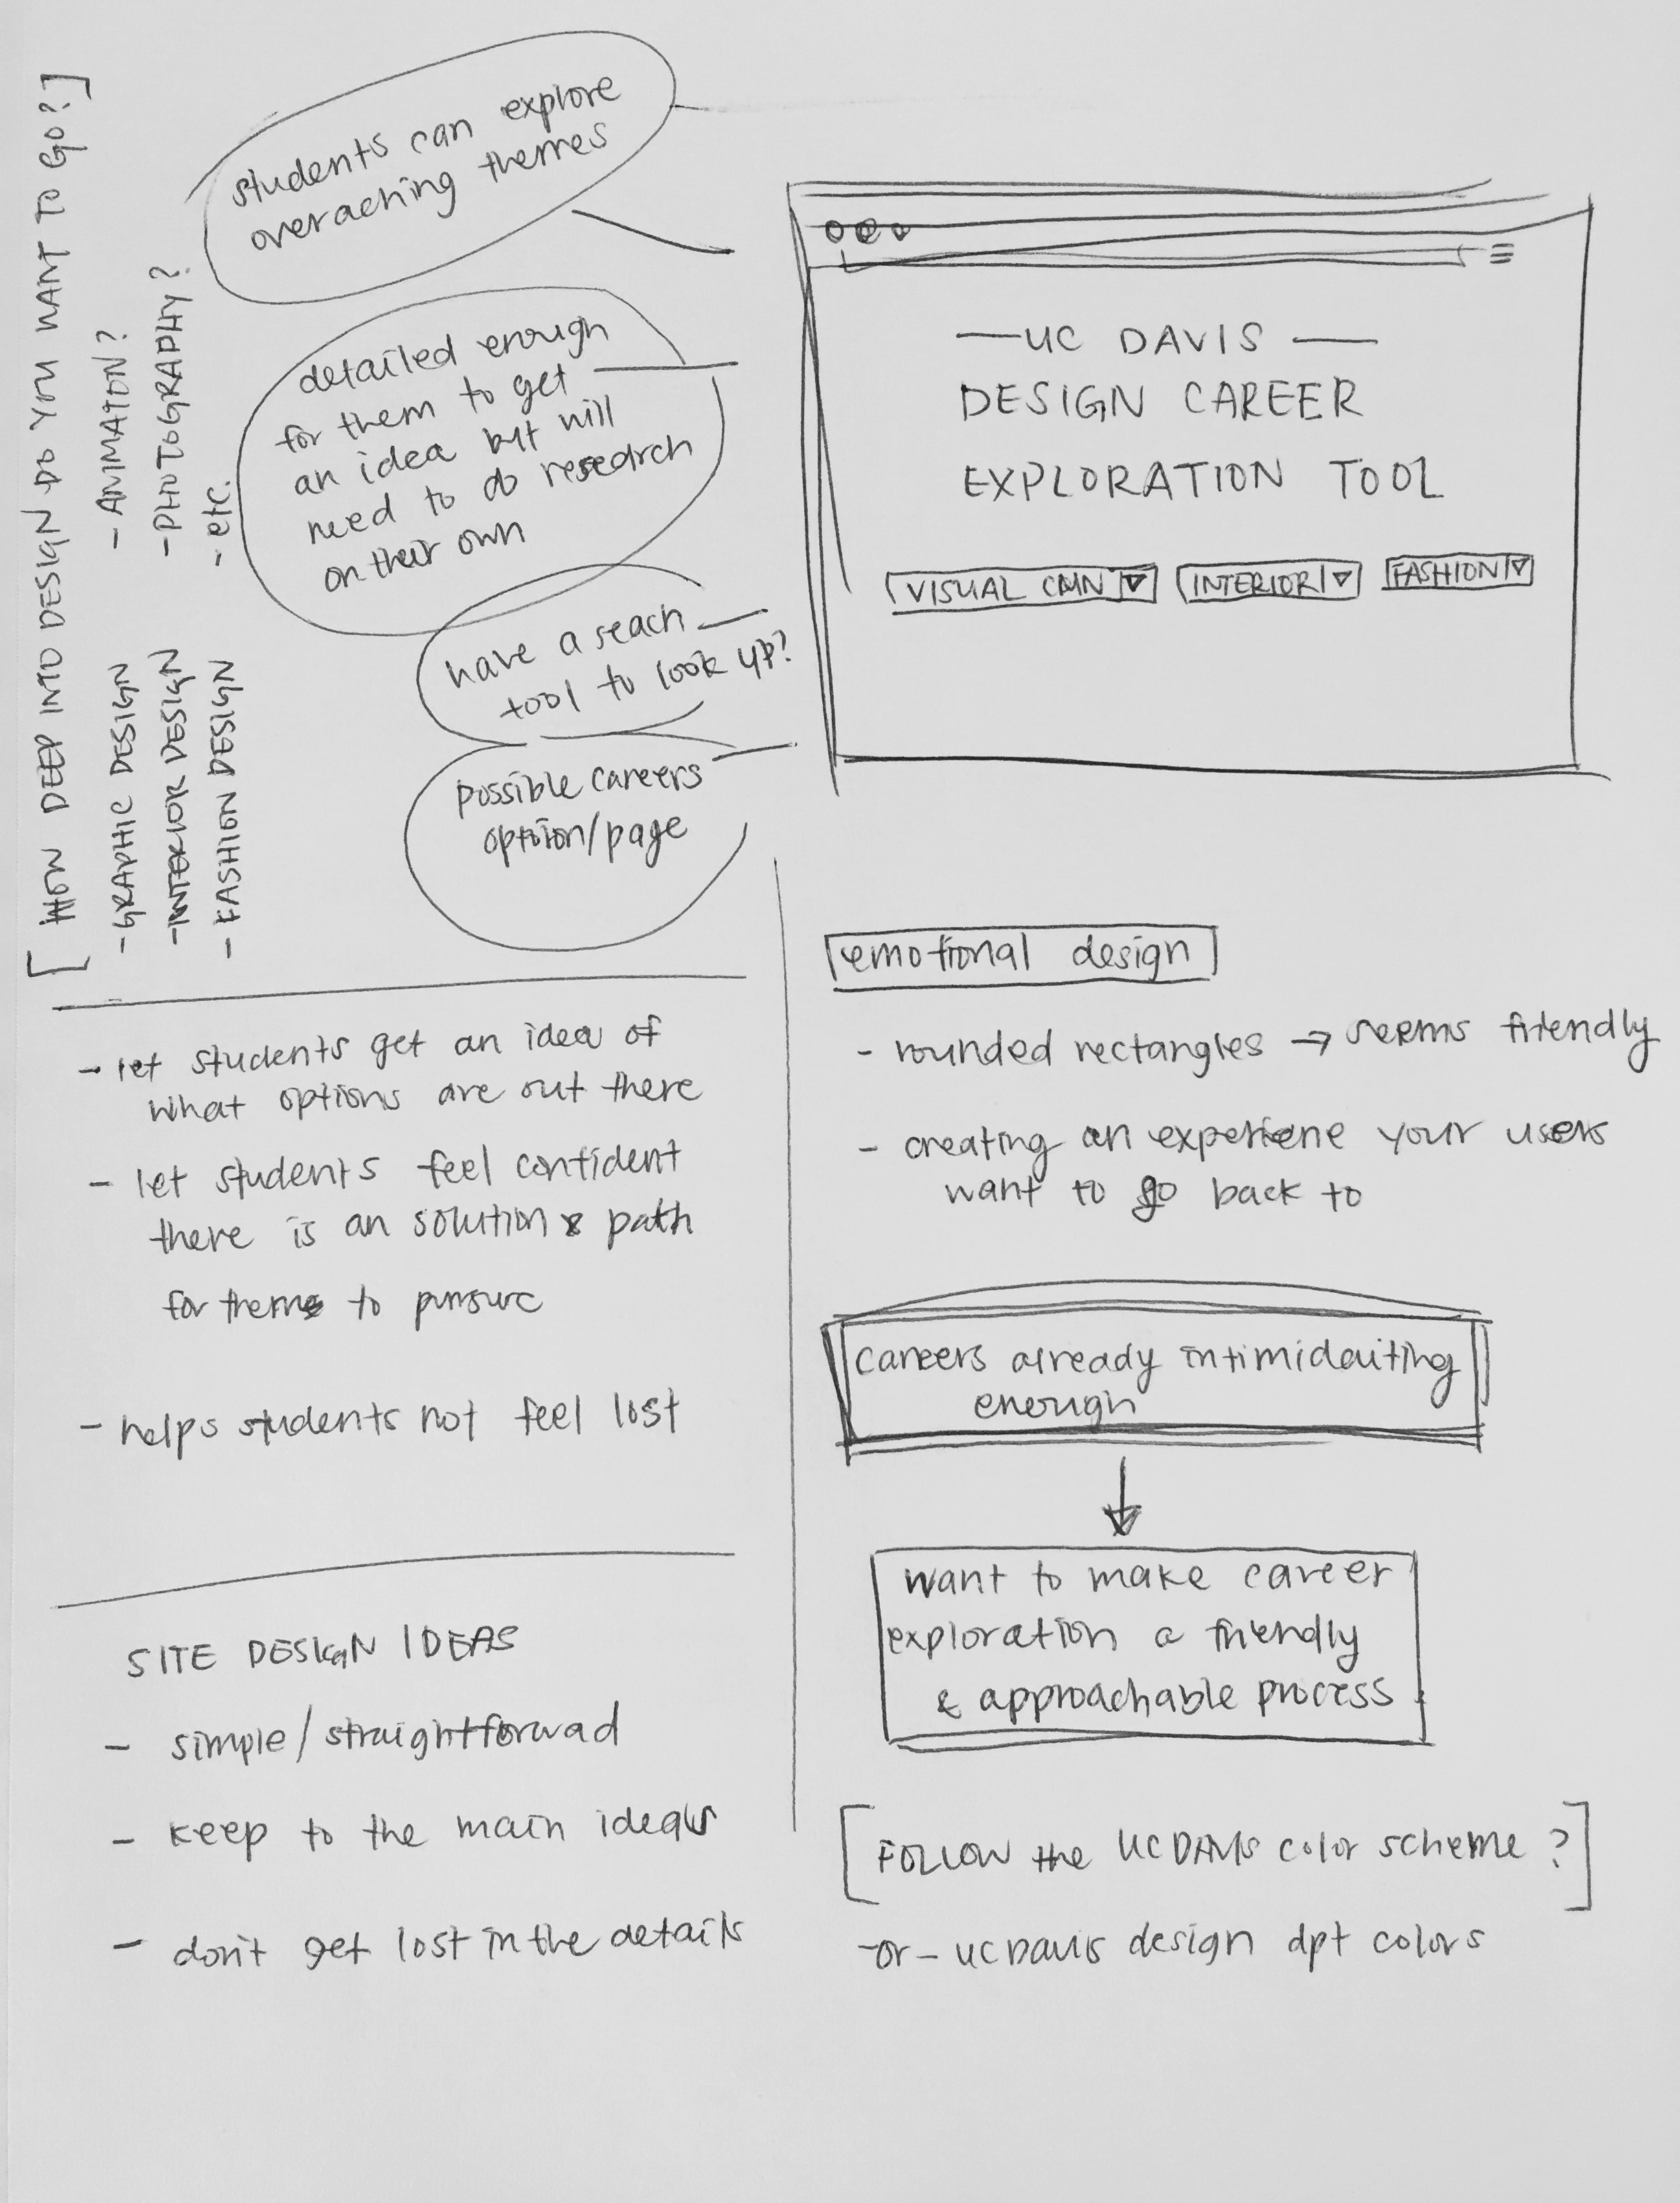 [HOW DEEP INTO DESIGN DO YOU WANT TO GO?]
- GRAPHIC DESIGN
- INTERIOR DESIGN
- FASHION DESIGN
- ANIMATION?
- PHOTOGRAPHY?
- etc.
students can explore
overaching themes
detailed enough
for them to get
an idea but will
need to do research
on their own
have a seach
tool to look up?
possible careers
option/page
— UC DAVIS —
DESIGN CAREER
EXPLORATION TOOL
VISUAL CMN
INTERIOR
FASHION
- let students get an idea of
what options are out there
- let students feel confident
there is an solution & path
for them to pursue
- helps students not feel lost
SITE DESIGN IDEAS
- simple/straightforwad
- keep to the main ideas
- don't get lost in the details
emotional design
- rounded rectangles → seems friendly
- creating an experiene your users
want to go back to
careers already intimidaiting
enough
want to make career
exploration a friendly
& approachable process
[FOLLOW the UC DAVIS color scheme?]
-or- UC Davis design dpt colors